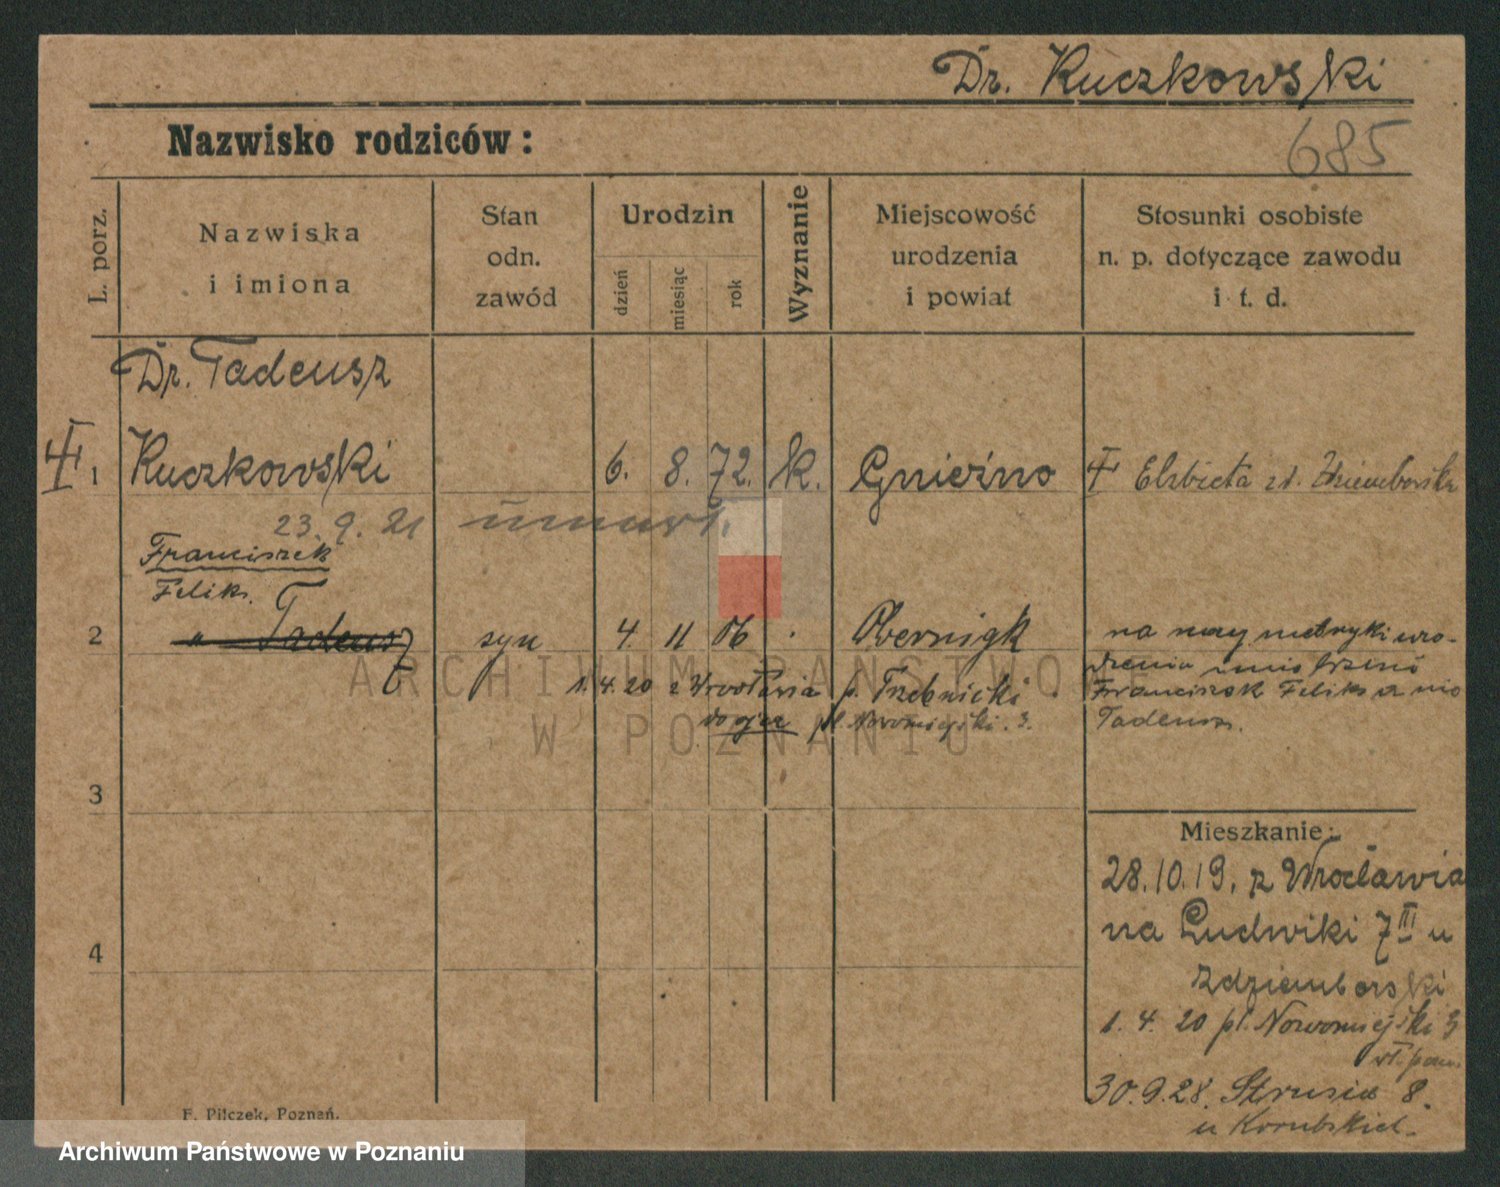 Dr. Kuczkowski
Nazwisko rodziców:
685
L. porz.
Nazwiska
i imiona
Stan
odn.
zawód
Urodzin
dzień
miesiąc
rok
Wyznanie
Miejscowość
urodzenia
i powiat
Stosunki osobiste
n. p. dotyczące zawodu
i t. d.
Dr. Tadeusz
1 Kuczkowski 6. 8. 72. k. Gnieźno Elżbieta zd. Zdziemborska
23.9.21 umarł.
Franciszek
Feliks.
2 " Tadeusz syn 4. 11 06 Obernigk
na mocy metryki uro-
dzenia imię brzmi
Franciszek Feliks a nie
Tadeusz.
1.4.20 z Wrocławia p. Trzebnicki
do ojca pl. Nowomiejski. 3.
3
4
Mieszkanie:
28.10.19. z Wrocławia
na Ludwiki 7 III u
Zdziemborski
1. 4. 20 pl. Nowomiejski 3
30.9.28. Strusia 8.
u
F. Pilczek, Poznań.
ARCHIWUM PAŃSTWOWE
W POZNANIU
Archiwum Państwowe w Poznaniu